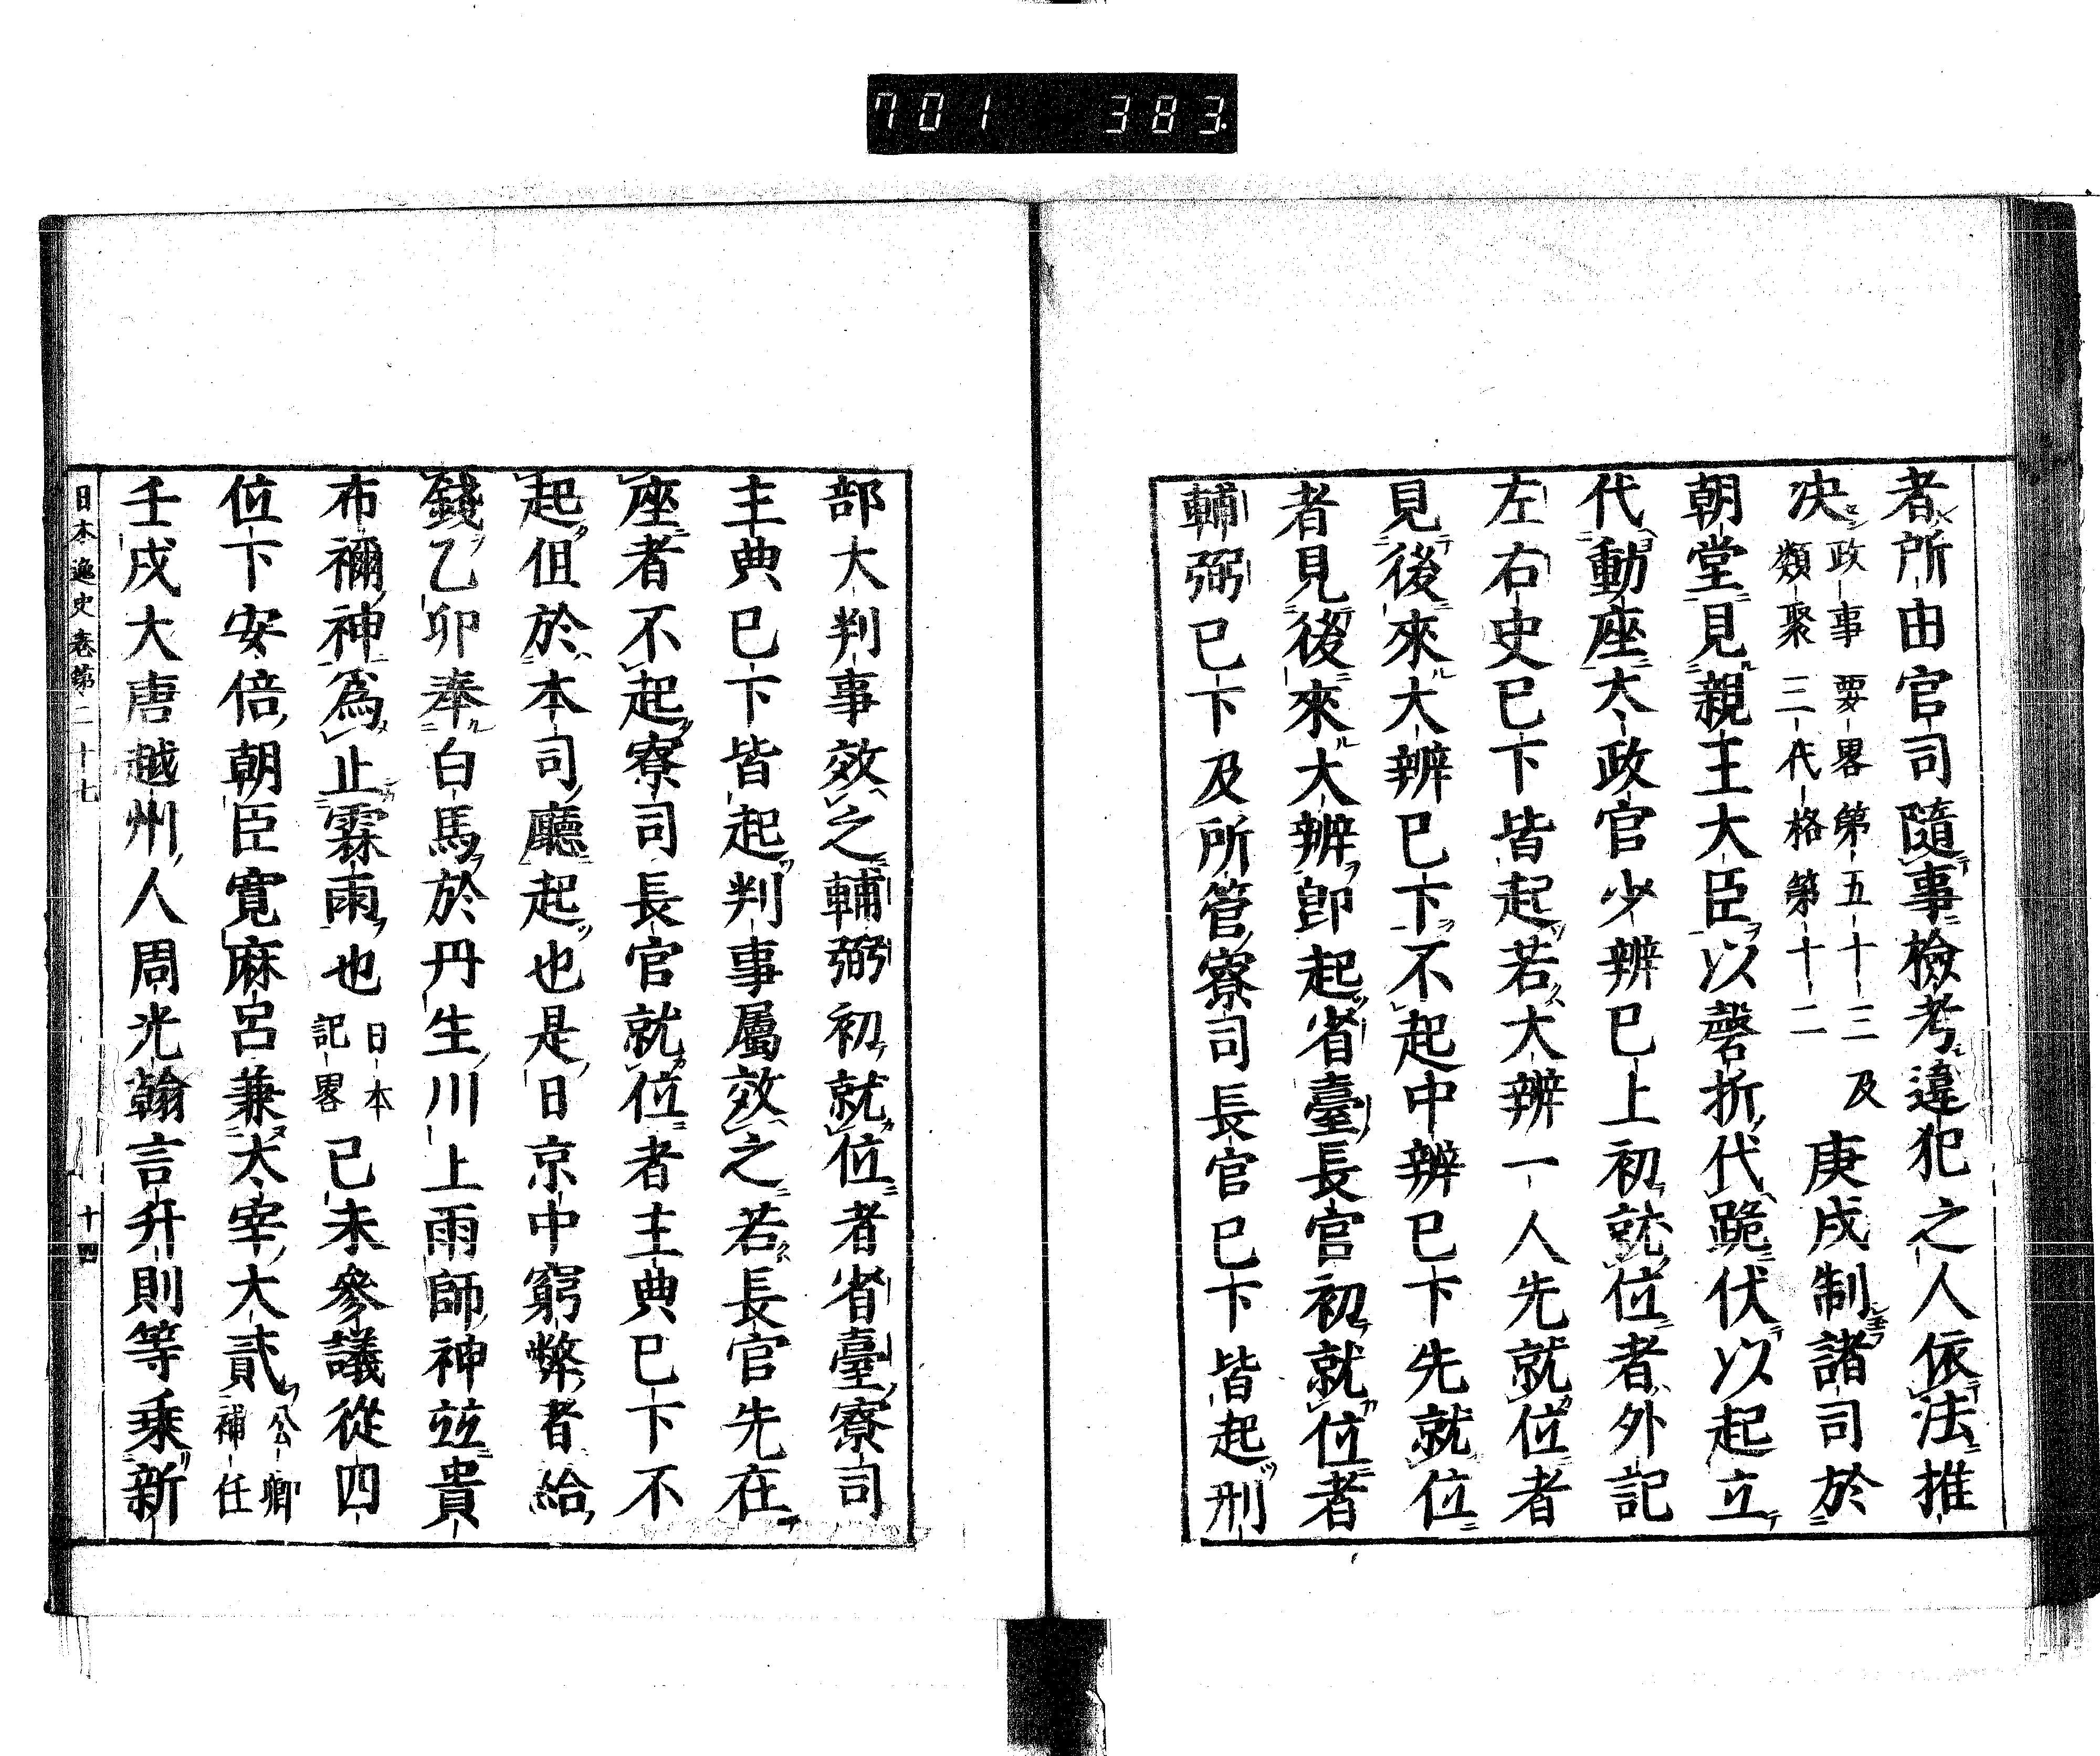 701 383
者所由官司隨事檢考違犯之人依法推
决政事要畧第五十三及類聚三代格第十二庚戌制諸司於
朝堂見親王大臣以磬折代跪伏以起立
代動座太政官少辨已上初就位者外記
左右史已下皆起若大辨一人先就位者
見後來大辨已下不起中辨已下先就位
者見後來大辨卽起省臺長官初就位者
輔弼已下及所管寮司長官已下皆起刑
部大判事效之輔弼初就位者省臺寮司
主典已下皆起判事屬效之若長官先在
座者不起寮司長官就位者主典已下不
起但於本司廳起也是日京中窮弊者給
錢乙卯奉白馬於丹生川上雨師神竝貴
布禰神爲止霖雨也日本記畧己未參議從四
位下安倍朝臣寬麻呂兼太宰大貳公卿補任
壬戌大唐越州人周光翰言升則等乗新
日本逸史卷第二十七 十四